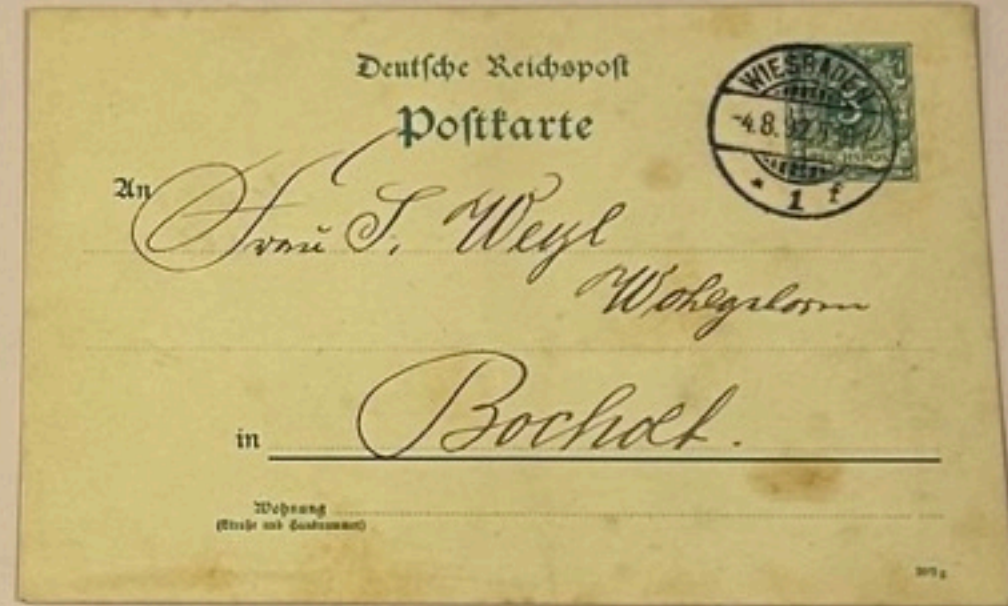 Deutsche Reichspost
Postkarte
WIESBADEN
-4.8.92
* 1 f
An Frau S. Weyl
Wohlgeboren
in Bocholt.
Wohnung
(Straße und Hausnummer)